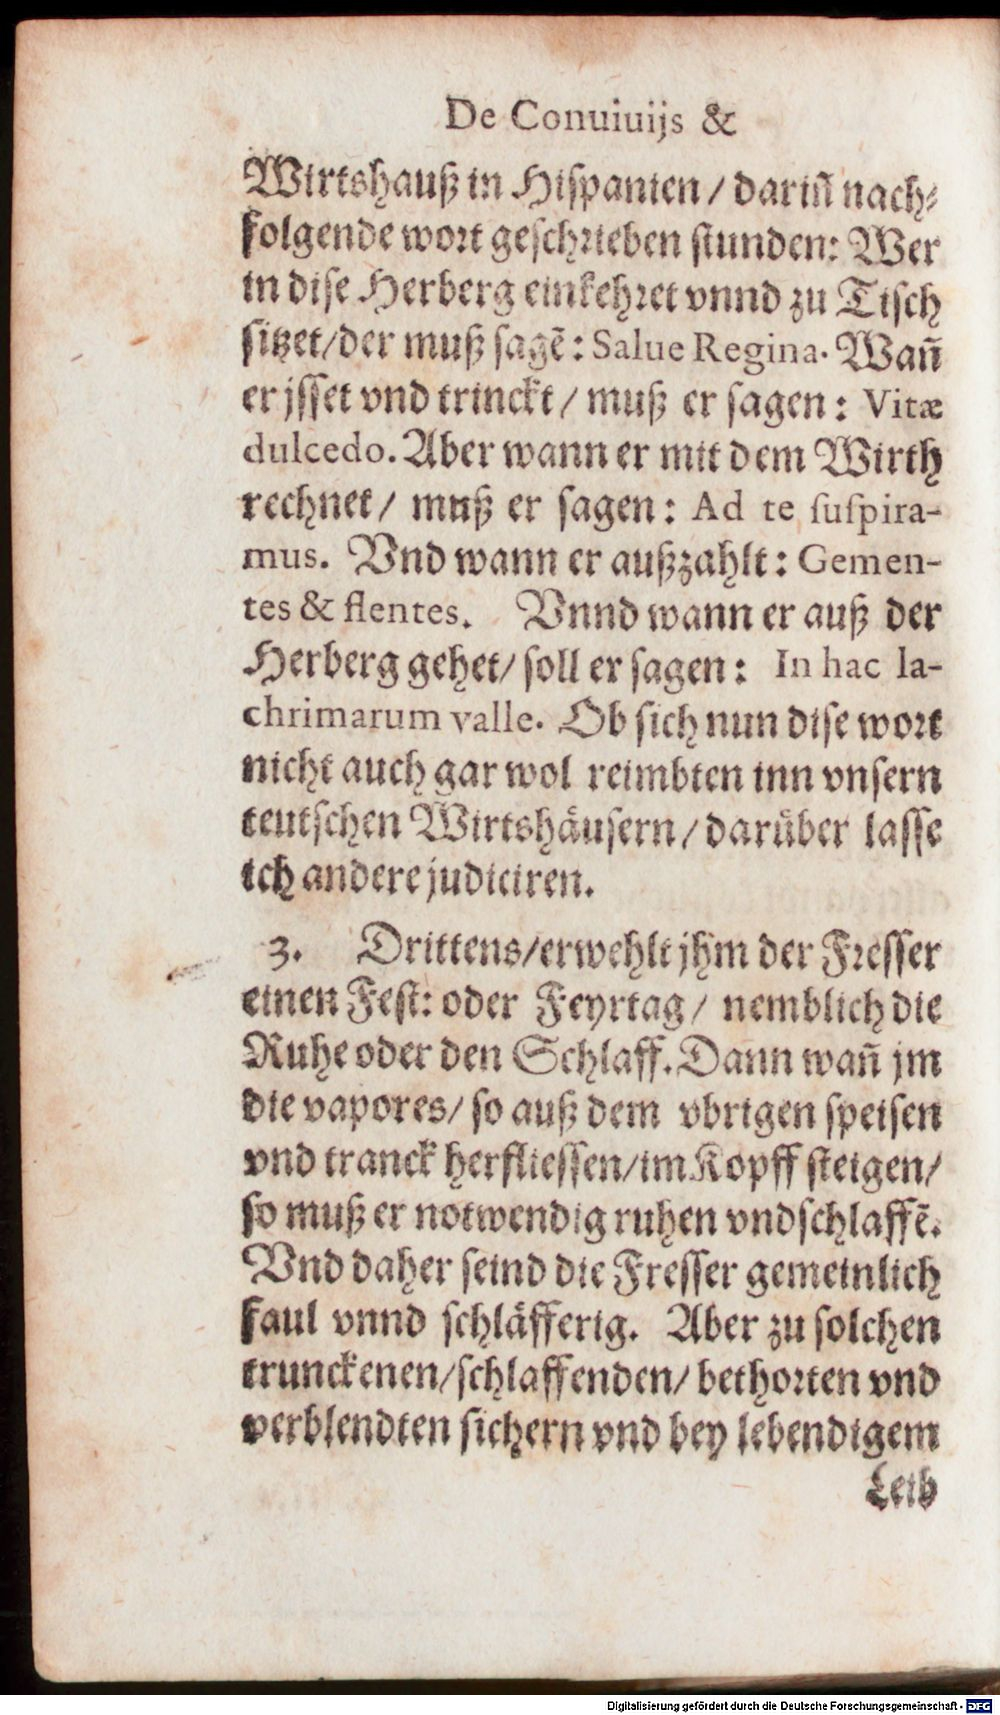 De Conuiuijs &
Wirtshauß in Hispanien / dariñ nach-
folgende wort geschrieben stunden: Wer
in dise Herberg einkehret vnnd zu Tisch
sitzet/der muß sagẽ: Salue Regina. Wañ
er jsset vnd trinckt / muß er sagen: Vitæ
dulcedo. Aber wann er mit dem Wirth
rechnet/ muß er sagen: Ad te suspira-
mus. Vnd wann er außzahlt: Gemen-
tes & flentes. Vnnd wann er auß der
Herberg gehet/ soll er sagen: In hac la-
chrimarum valle. Ob sich nun dise wort
nicht auch gar wol reimbten inn vnsern
teutschen Wirtshäusern/ darüber lasse
ich andere judiciren.
3. Drittens/erwehlt jhm der Fresser
einen Fest: oder Feyrtag/ nemblich die
Ruhe oder den Schlaff. Dann wañ jm
die vapores/ so auß dem vbrigen speisen
vnd tranck herfliessen/im Kopff steigen/
so muß er notwendig ruhen vnd schlaffẽ.
Vnd daher seind die Fresser gemeinlich
faul vnnd schläfferig. Aber zu solchen
trunckenen/schlaffenden/ bethorten vnd
verblendten sichern vnd bey lebendigem
Leib
Digitalisierung gefördert durch die Deutsche Forschungsgemeinschaft - DFG